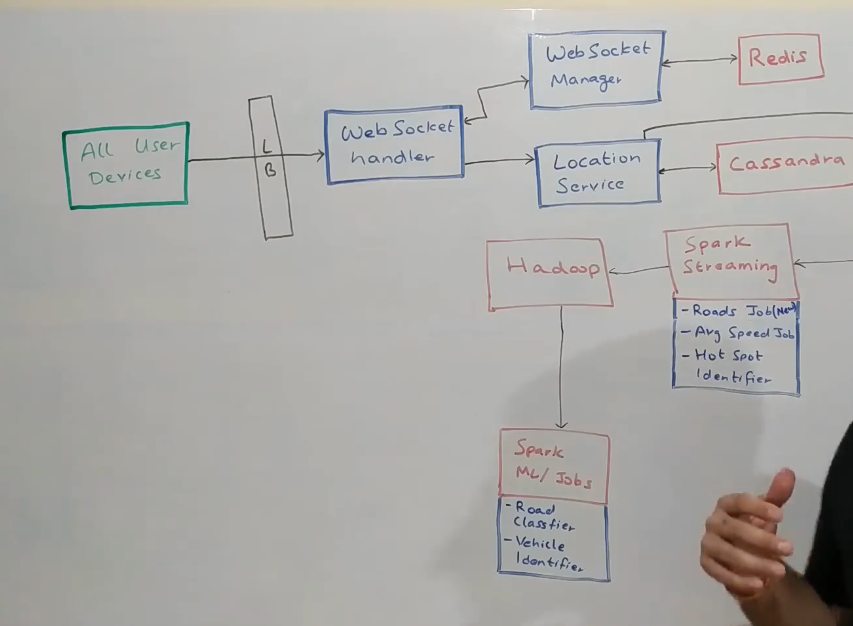 All User
Devices
L
B
WebSocket
handler
WebSocket
Manager
Redis
Location
Service
Cassandra
Hadoop
Spark
Streaming
- Roads Job(New)
- Avg Speed Job
- Hot Spot
Identifier
Spark
ML/Jobs
- Road
Classfier
- Vehicle
Identifier